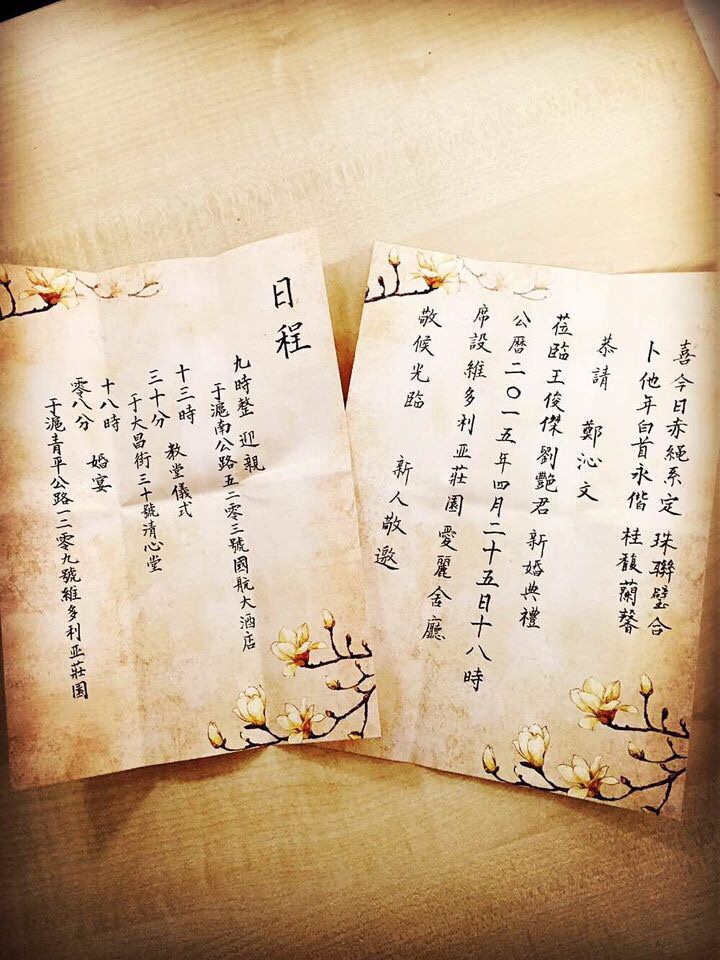 喜今日赤繩系定 珠聯璧合
卜他年白首永偕 桂馥蘭馨
恭請 鄭沁文
莅臨王俊傑劉艷君 新婚典禮
公曆二〇一五年四月二十五日十八時
席設維多利亚莊園 愛麗舍廳
敬候光臨
新人敬邀
日程
九時整 迎親
于滬南公路五二零三號國航大酒店
十三時 教堂儀式
三十分
于大昌街三十號清心堂
十八時 婚宴
零八分
于滬青平公路一二零九號維多利亚莊園